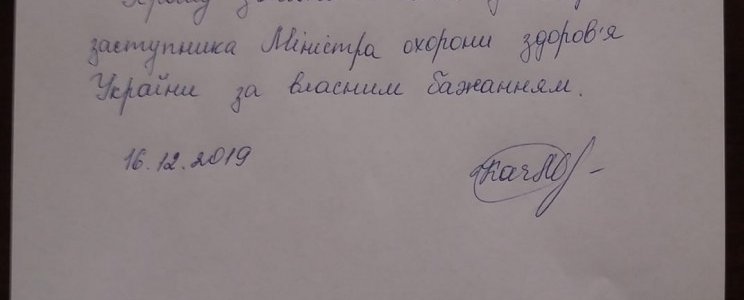 Прошу
заступника Міністра охорони здоров'я
України за власним бажанням.
16.12.2019